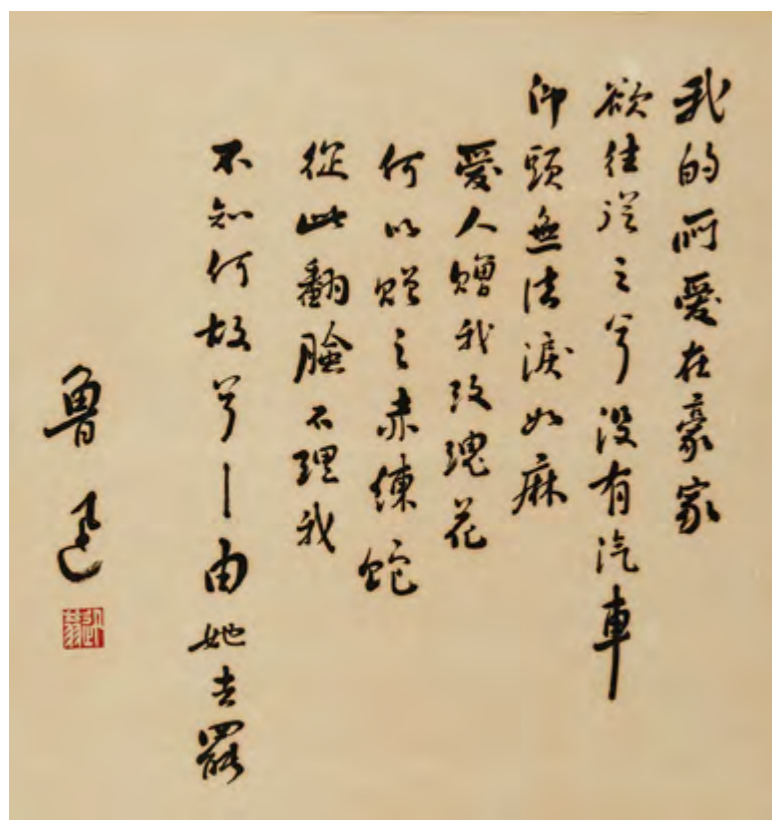 我的所愛在豪家
欲往從之兮没有汽車
仰頭無法淚如麻
愛人贈我玫瑰花
何以贈之赤練蛇
從此翻臉不理我
不知何故兮—由她去罷
魯迅